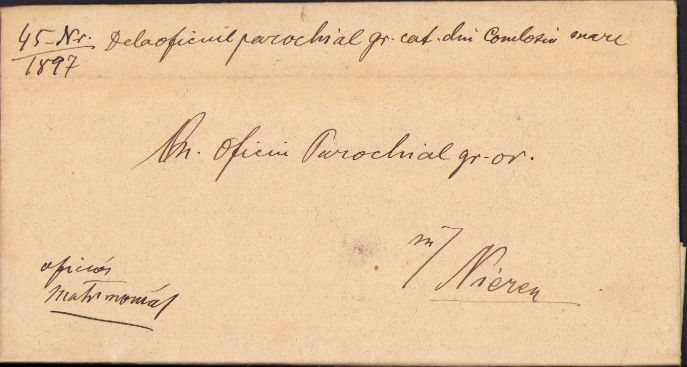 45-Nr.
1897
Dela oficiul parochial gr. cat. din Comlosiu mare
On. Oficiu Parochial gr-or.
in
oficiós
matrimonial